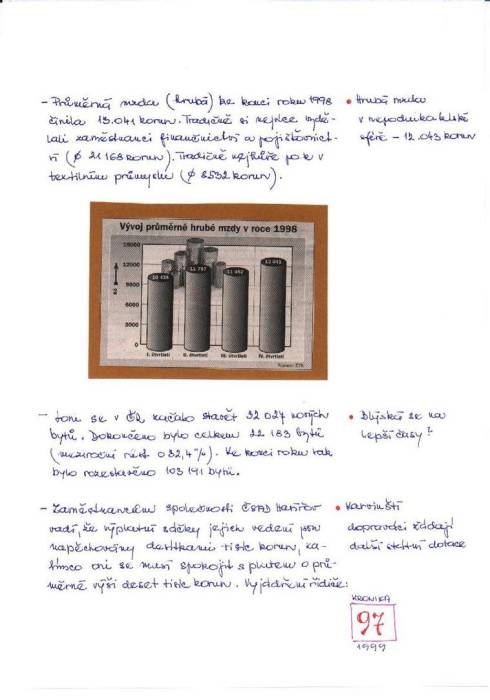 - Průměrná mzda (hrubá) ke konci roku 1998
činila 13.041 korun. Tradičně si nejvíce vydě-
lali zaměstnanci finančnictví a pojišťovnict-
ví (ø 21168 korun). Tradičně nejhůře pak v
textilním průmyslu (ø 8532 korun).
• Hrubá mzda
v nepodnikatelské
sféře - 12.043 korun
Vývoj průměrné hrubé mzdy v roce 1998
15000
12000
9000
6000
3000
0
Kč
10 434
11 797
11 462
13 041
I. čtvrtletí
II. čtvrtletí
III. čtvrtletí
IV. čtvrtletí
Pramen: ČTK
- Loni se v ČR začalo stavět 32 027 nových
bytů. Dokončeno bylo celkem 22 183 bytů
(meziroční růst o 32,4%). Ke konci roku tak
bylo rozestavěno 103 191 bytů.
• Blýská se na
lepší časy!
- Zaměstnancům společnosti ČSAD Havířov
vadí, že výplatní sáčky jejich vedení jsou
napěchovány desítkami tisíc korun, za-
tímco oni se musí spokojit s platem o prů-
měrné výši deset tisíc korun. Vyjádření řidiče:
• Karvinští
dopravci žádají
další státní dotace
KRONIKA
97
1999